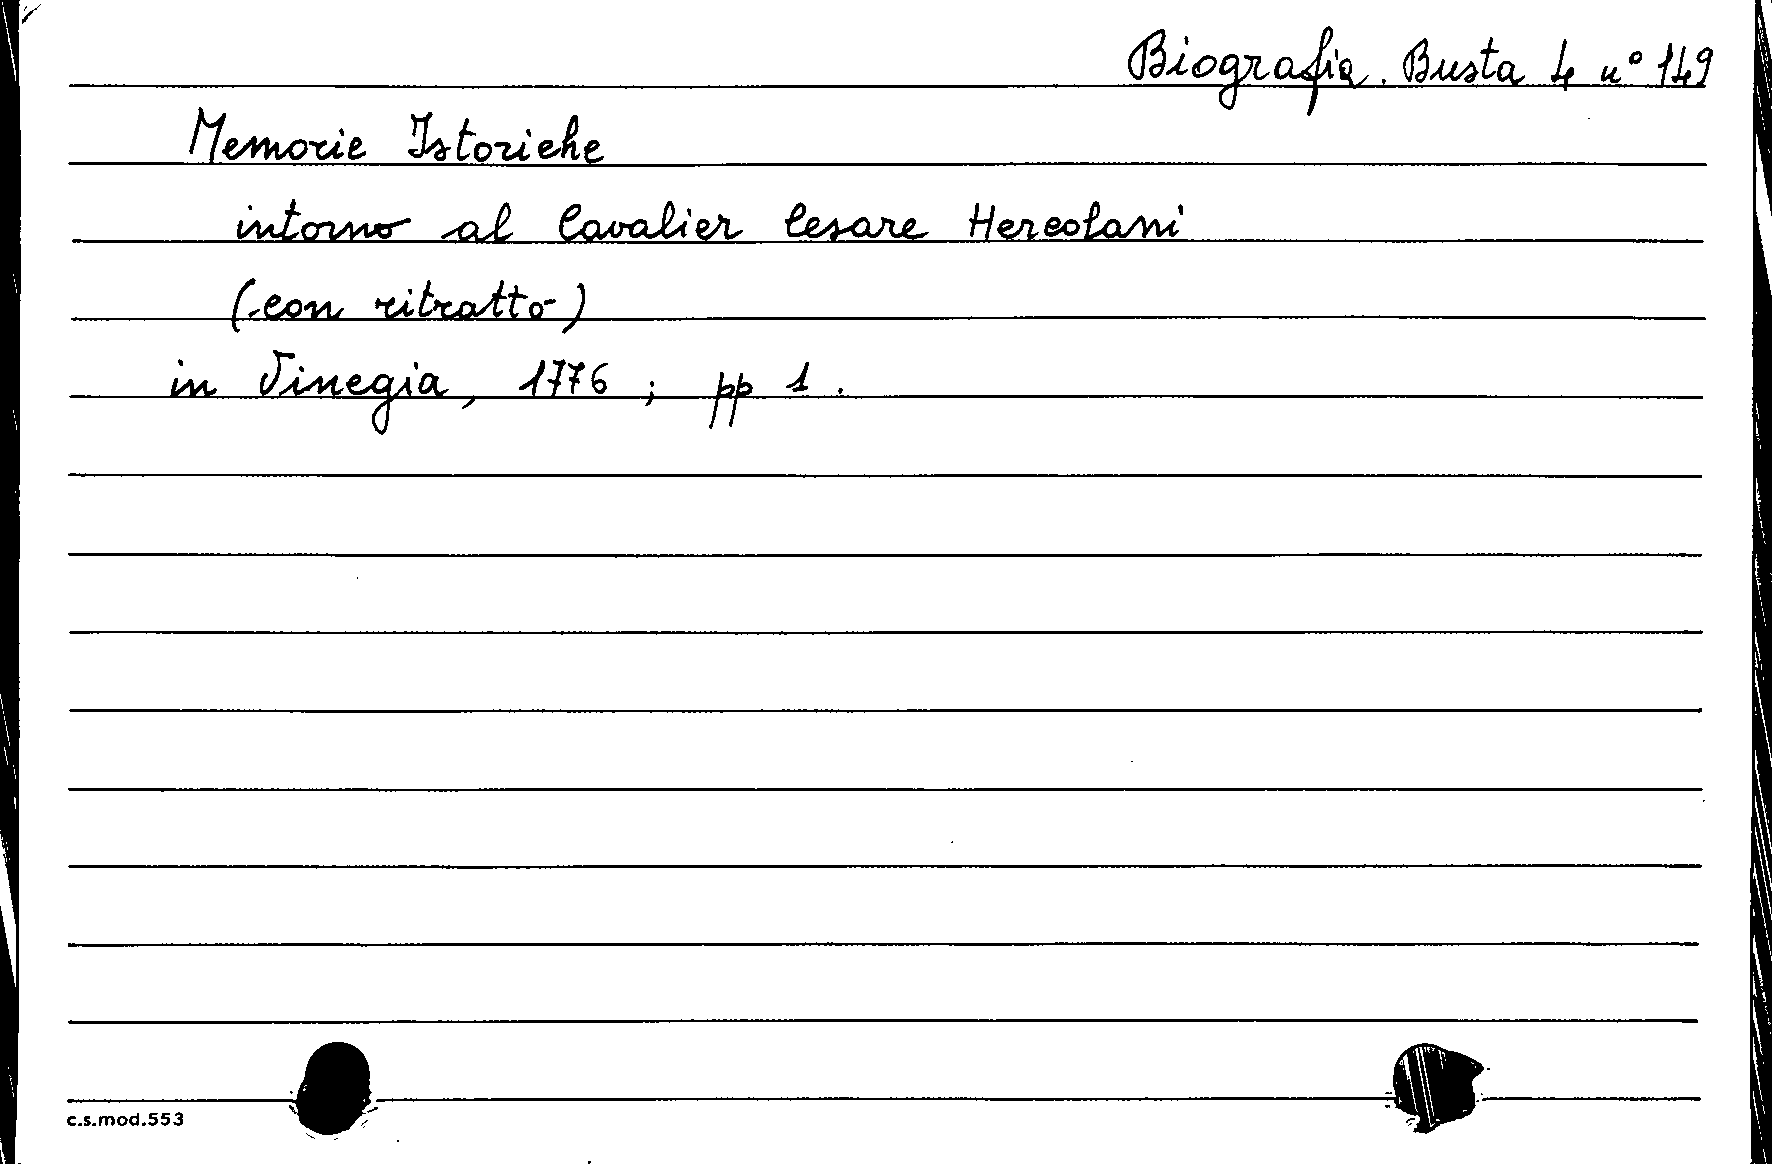 Biografia. Busta 4 n° 149
Memorie Istoriche
intorno al Cavalier Cesare Hercolani
(con ritratto)
in Vinegia, 1776; pp 1.
c.s.mod.553